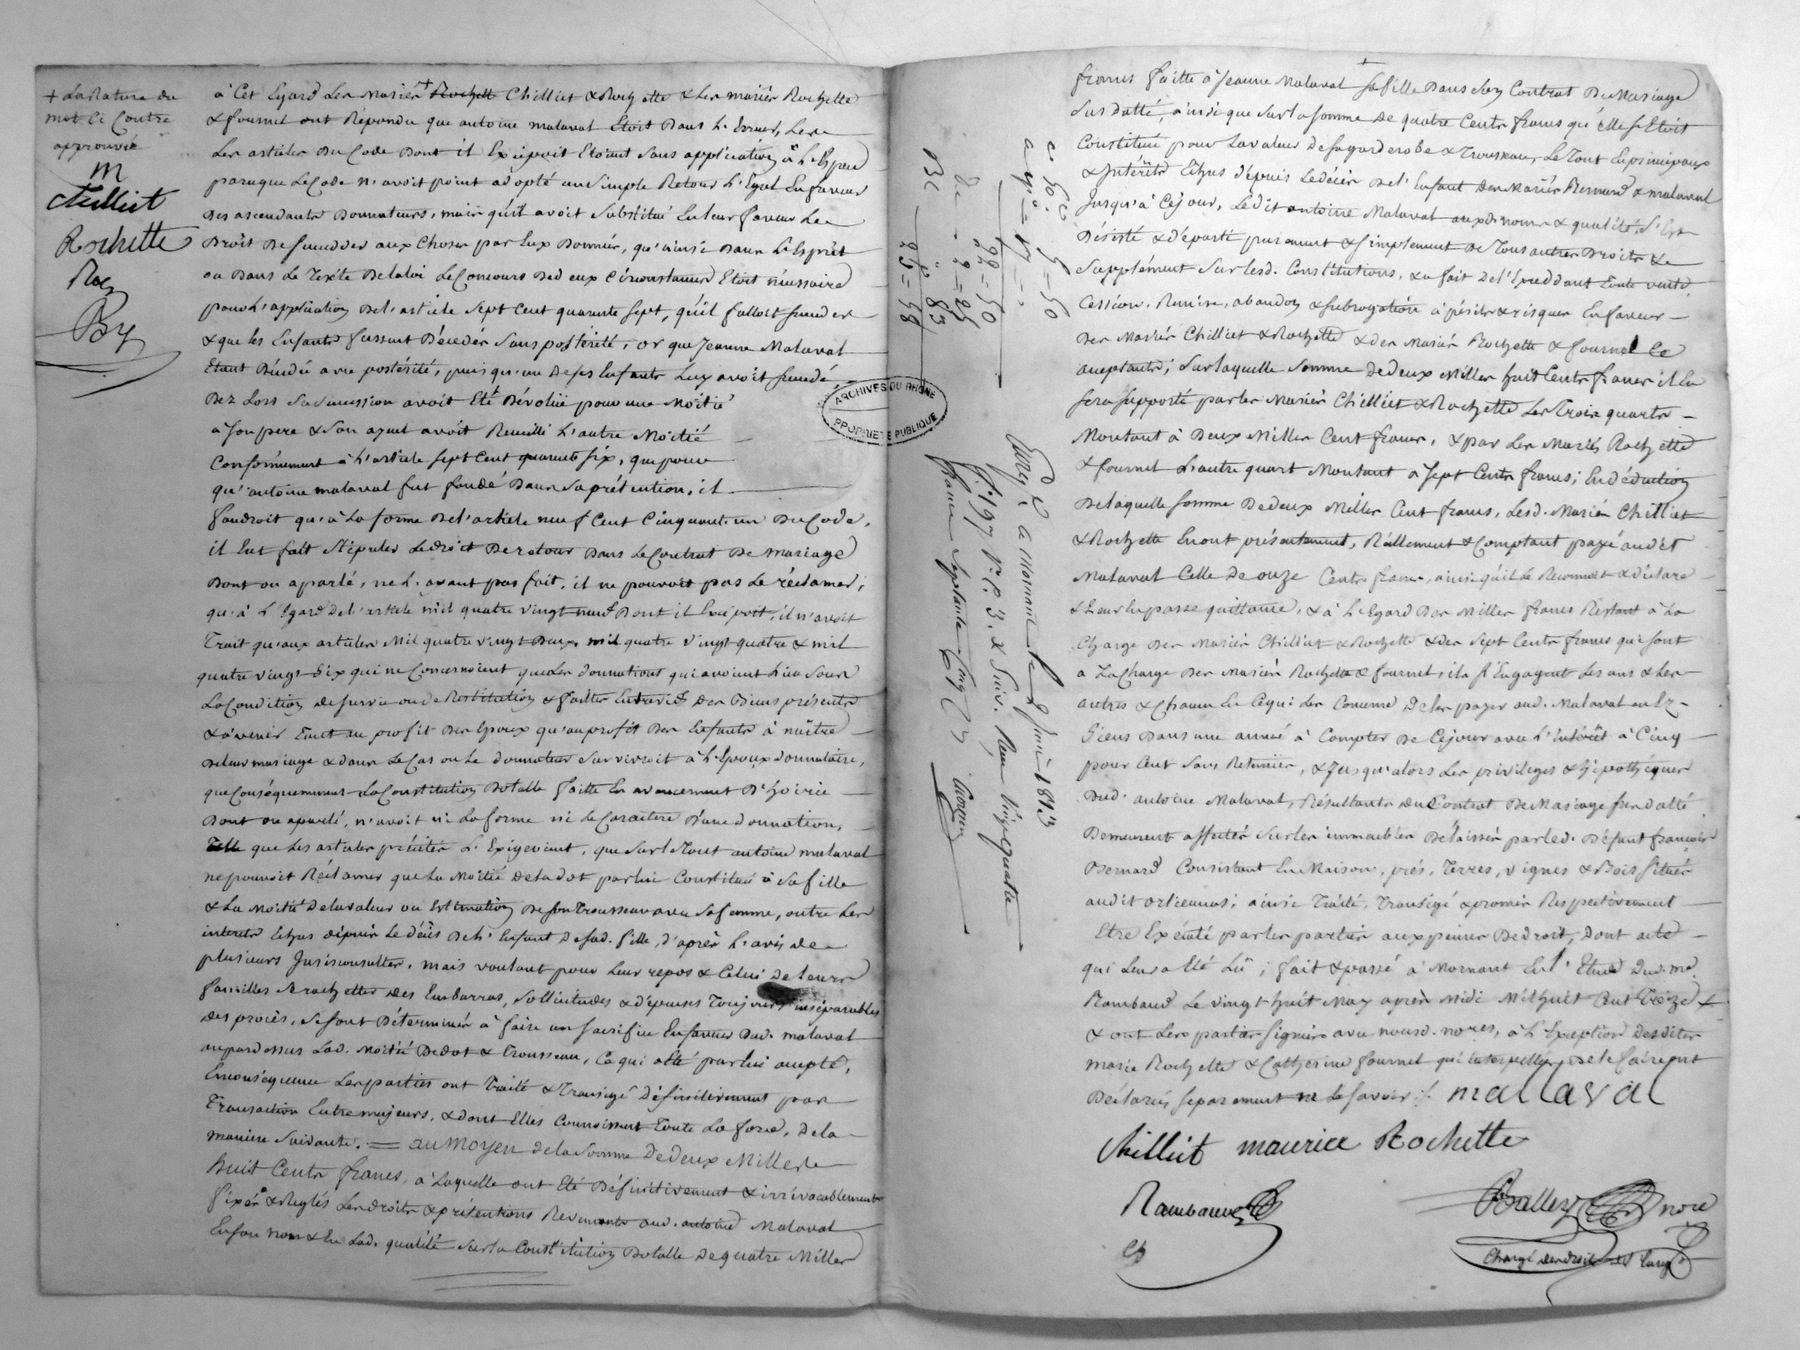 + La Rature du
mot Ci Contre
approuvée
m
Chilliet
Rochette
Roc
à Cet Egard Les Mariés + Rochette Chilliet & Rochette & Les mariés Rochette
& fournel ont Répondu que antoine malaval Etoit Dans L'Erreur, Les
Les articles Du Code Dont il Excipoit Etoient Sans application à L'Espece
parceque Le Code n'avoit point adopté un Simple Retour Légal En faveur
Des ascendants Donnateurs, mais qu'il avoit Substitué En leur faveur Le
Droit De Succeder aux Choses par Eux Données, qu'ainsi Dans L'Esprit
ou Dans Le Texte De la loi Le Concours Des deux Circonstances Etoit nécessaire
pour L'application De l'article Sept Cent quarante Sept, qu'il falloit succeder
& que les Enfants fussent Décédés Sans postérité, or que Jeanne Malaval
Etant Décédée avec postérité, puis qu'un De ses Enfants Luy avoit succédé,
Dez Lors Sa Succession avoit Eté Dévolüe pour une Moitié
a Son pere & Son ayeul avoit Recueilli L'autre Moitié
Conformément à L'article Sept Cent quarante Six, que pour
qu'antoine malaval fut fondé Dans Sa prétention, il
faudroit qu'à La forme De l'article neuf Cent Cinquante un Du Code,
il Eut fait Stipuler Le droit De retour Dans Le Contrat De mariage
Dont on a parlé, ne L'ayant pas fait, il ne pouvoit pas Le réclamer;
qu'à L'Egard de l'article mil quatre vingt neuf Dont il Excipoit, il n'avoit
Trait qu'aux articles Mil quatre vingt Deux, mil quatre vingt quatre & mil
quatre vingt Six qui ne Concernoient que Les donnations qui avoient Lieu Sous
La Condition de survie ou de Restitution & faites des Biens présents
& à venir Tant au profit Des Epoux qu'au profit Des Enfants à naître
De leur mariage & dans Le Cas ou Le donnateur Survivroit à L'Epoux donnataire,
que Conséquemment La Constitution Dotalle faitte En avancement D'hoirie
Dont on a parlé, n'avoit ni La forme ni Le Caractère D'une donnation,
Telle que Les articles précités L'Exigeoient, que Sur le Tout antoine malaval
ne pouvoit Réclamer que La Moitié De la dot par lui Constituée à Sa fille
& La Moitié De la valeur ou Estimation De Son Trousseau avec Sa femme, outre Les
interets Echus depuis Le décès De L'Enfant De Sad. fille, d'après L'avis de
plusieurs Jurisconsultes. Mais voulant pour Leur repos & Celui De Leurs
familles Se rachetter Des Embarras, Sollicitudes & dépenses Toujours inséparables
Des procès, Se Sont Déterminés à faire un Sacrifice En faveur Dud. malaval
au par dessus Lad. Moitié De dot & Trousseau, Ce qui a Eté par lui accepté,
En conséquence Les parties ont Traité & Transigé Définitivement par
Transaction Entre majeurs, & dont Elles Connoissent Toute La force, De la
maniere Suivante. = au Moyen de la Somme De deux Mille
huit Cents francs, à Laquelle ont Eté Définitivement & irrévocablement
fixés & Réglés Les droits & prétentions Revenants aud. antoine Malaval
En Son Nom & En Lad. qualité Sur la Constitution Dotalle De quatre Mille
ARCHIVES DU RHONE
PROPRIETE PUBLIQUE
22 = 50
2 = 25
28 = 83
23 = 58
1813
francs faitte à Jeanne Malaval Sa fille Dans Son Contrat De Mariage
Sus datté, ainsi que Sur la Somme De quatre Cents francs qu'elle S'Etoit
Constitué pour La valeur de sa garderobe & Trousseau, Le Tout En principaux
& Intérêts Echus depuis Le décès De L'Enfant Des Mariés Bernard & malaval
Jusqu'à Ce jour, Le dit antoine Malaval aux d. noms & qualités S'Est
Désisté & départi purement & simplement De Tous autres Droits &
Supplément Sur Lesd. Constitutions, & a fait De l'Excédant Toute vente,
Cession, Remise, abandon & Subrogation à périls & risques En faveur
Des Mariés Chilliet & Rochette & des Mariés Rochette & fournel Ce
acceptants; Sur laquelle Somme De deux Milles huit Cents francs il En
Sera Supporté par les Mariés Chilliet & Rochette Les Trois quarts
Montant à Deux Milles Cent francs, & par Les Mariés Rochette
& fournel L'autre quart Montant à Sept Cents francs; En déduction
De laquelle Somme De deux Milles Cent francs, Lesd. Mariés Chilliet
& Rochette En ont présentement, Réellement & Comptant payé audit
Malaval Celle De onze Cents francs, ainsi qu'il Le Reconnoit & déclare
& Leur En passe quittance, & à L'Egard Des Milles francs Restant à La
Charge Des Mariés Chilliet & Rochette & des Sept Cents francs qui Sont
a La Charge Des Mariés Rochette & fournel, ils S'Engagent Les uns & Les
autres & Chacun En Ce qui Les Concerne De les payer aud. Malaval ou Ez
Siens Dans une année à Compter De Ce jour avec L'intérêt à Cinq
pour Cent Sans Retenue, & Jusqu'alors Les privileges & hipothèques
Dud. antoine Malaval, Résultants Du Contrat De Mariage Sus datté
Demeurent affectés Sur les immeubles Délaissés par led. Défunt françois
Bernard Consistant En Maison, prés, Terres, vignes & Bois Situés
audit orlienas; ainsi Traité, Transigé & promis Respectivement
Etre Exécuté par les parties aux peines De droit, Dont acte
qui Leur a Eté Lû; fait & passé à Mornant En l'Etude Dud. me
Rambaud Le vingt huit May après Midi Mil huit Cent Treize +
& ont Les parties Signées avec nousd. nores, à L'Exception desdittes
marie Rochette & Catherine fournel qui interpellées de le faire ont
Déclarées séparément ne le Savoir ./. mallaval
Chilliet maurice Rochette
Rambaud
nore
Chargé des droits